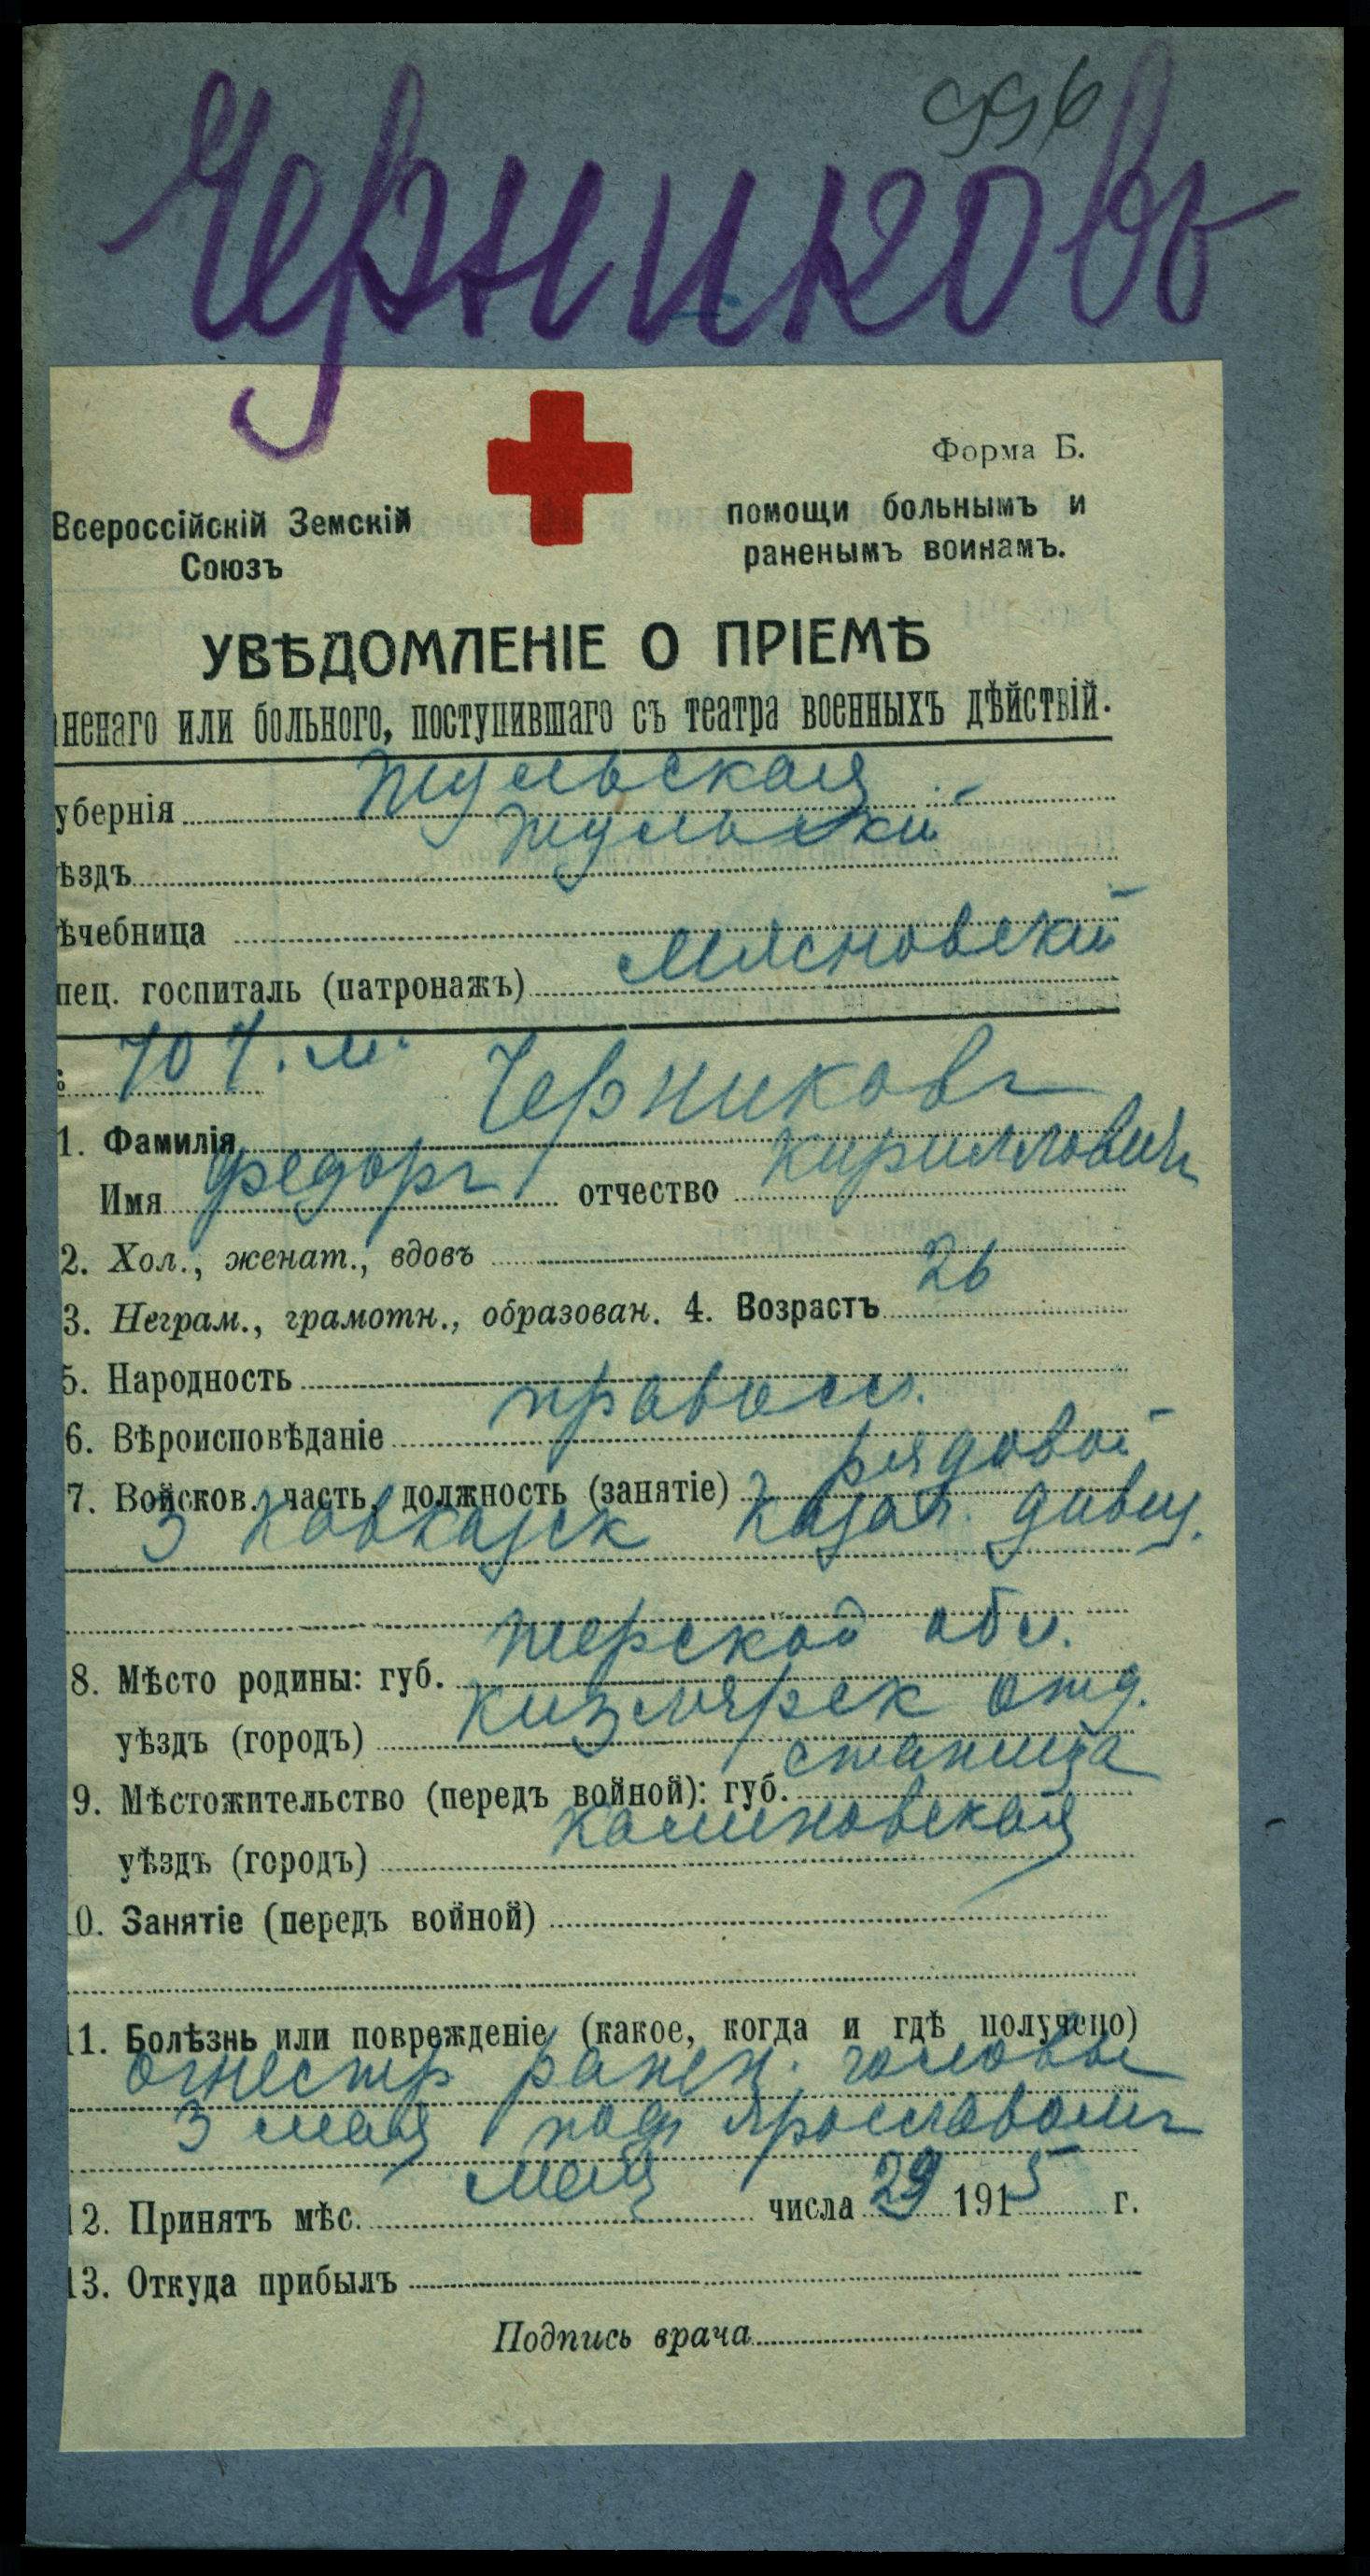 996
Черниковъ
Форма Б.
Всероссійскій Земскій
Союзъ
помощи больнымъ и
раненымъ воинамъ.
УВѢДОМЛЕНІЕ О ПРІЕМѢ
ненаго или больного, поступившаго съ театра военныхъ дѣйствій.
убернія Тульская
ѣздъ Тульскій
ѣчебница
пец. госпиталь (патронажъ) Мясновский
707. м. Черниковъ
1. Фамилія
Имя Федоръ отчество Кирилловичъ
2. Хол., женат., вдовъ
3. Неграм., грамотн., образован. 4. Возрастъ 26
5. Народность
6. Вѣроисповѣданіе правосл.
7. Войсков. часть, должность (занятіе) рядовой
3 Кавказск Казач. дивиз.
8. Мѣсто родины: губ. Терской обл.
уѣздъ (городъ) Кизлярск отд.
9. Мѣстожительство (передъ войной): губ. станица
уѣздъ (городъ) Калиновская
0. Занятіе (передъ войной)
11. Болѣзнь или поврежденіе (какое, когда и гдѣ получено)
огнестр ранен. головы
3 мая под Ярославомъ
12. Принятъ мѣс. мая числа 29 1915 г.
13. Откуда прибылъ
Подпись врача